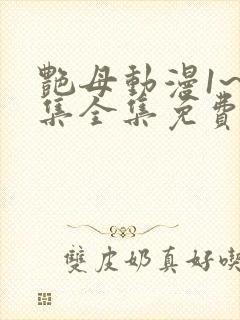 艷母動漫1~
集全集免費
雙皮奶真好喫